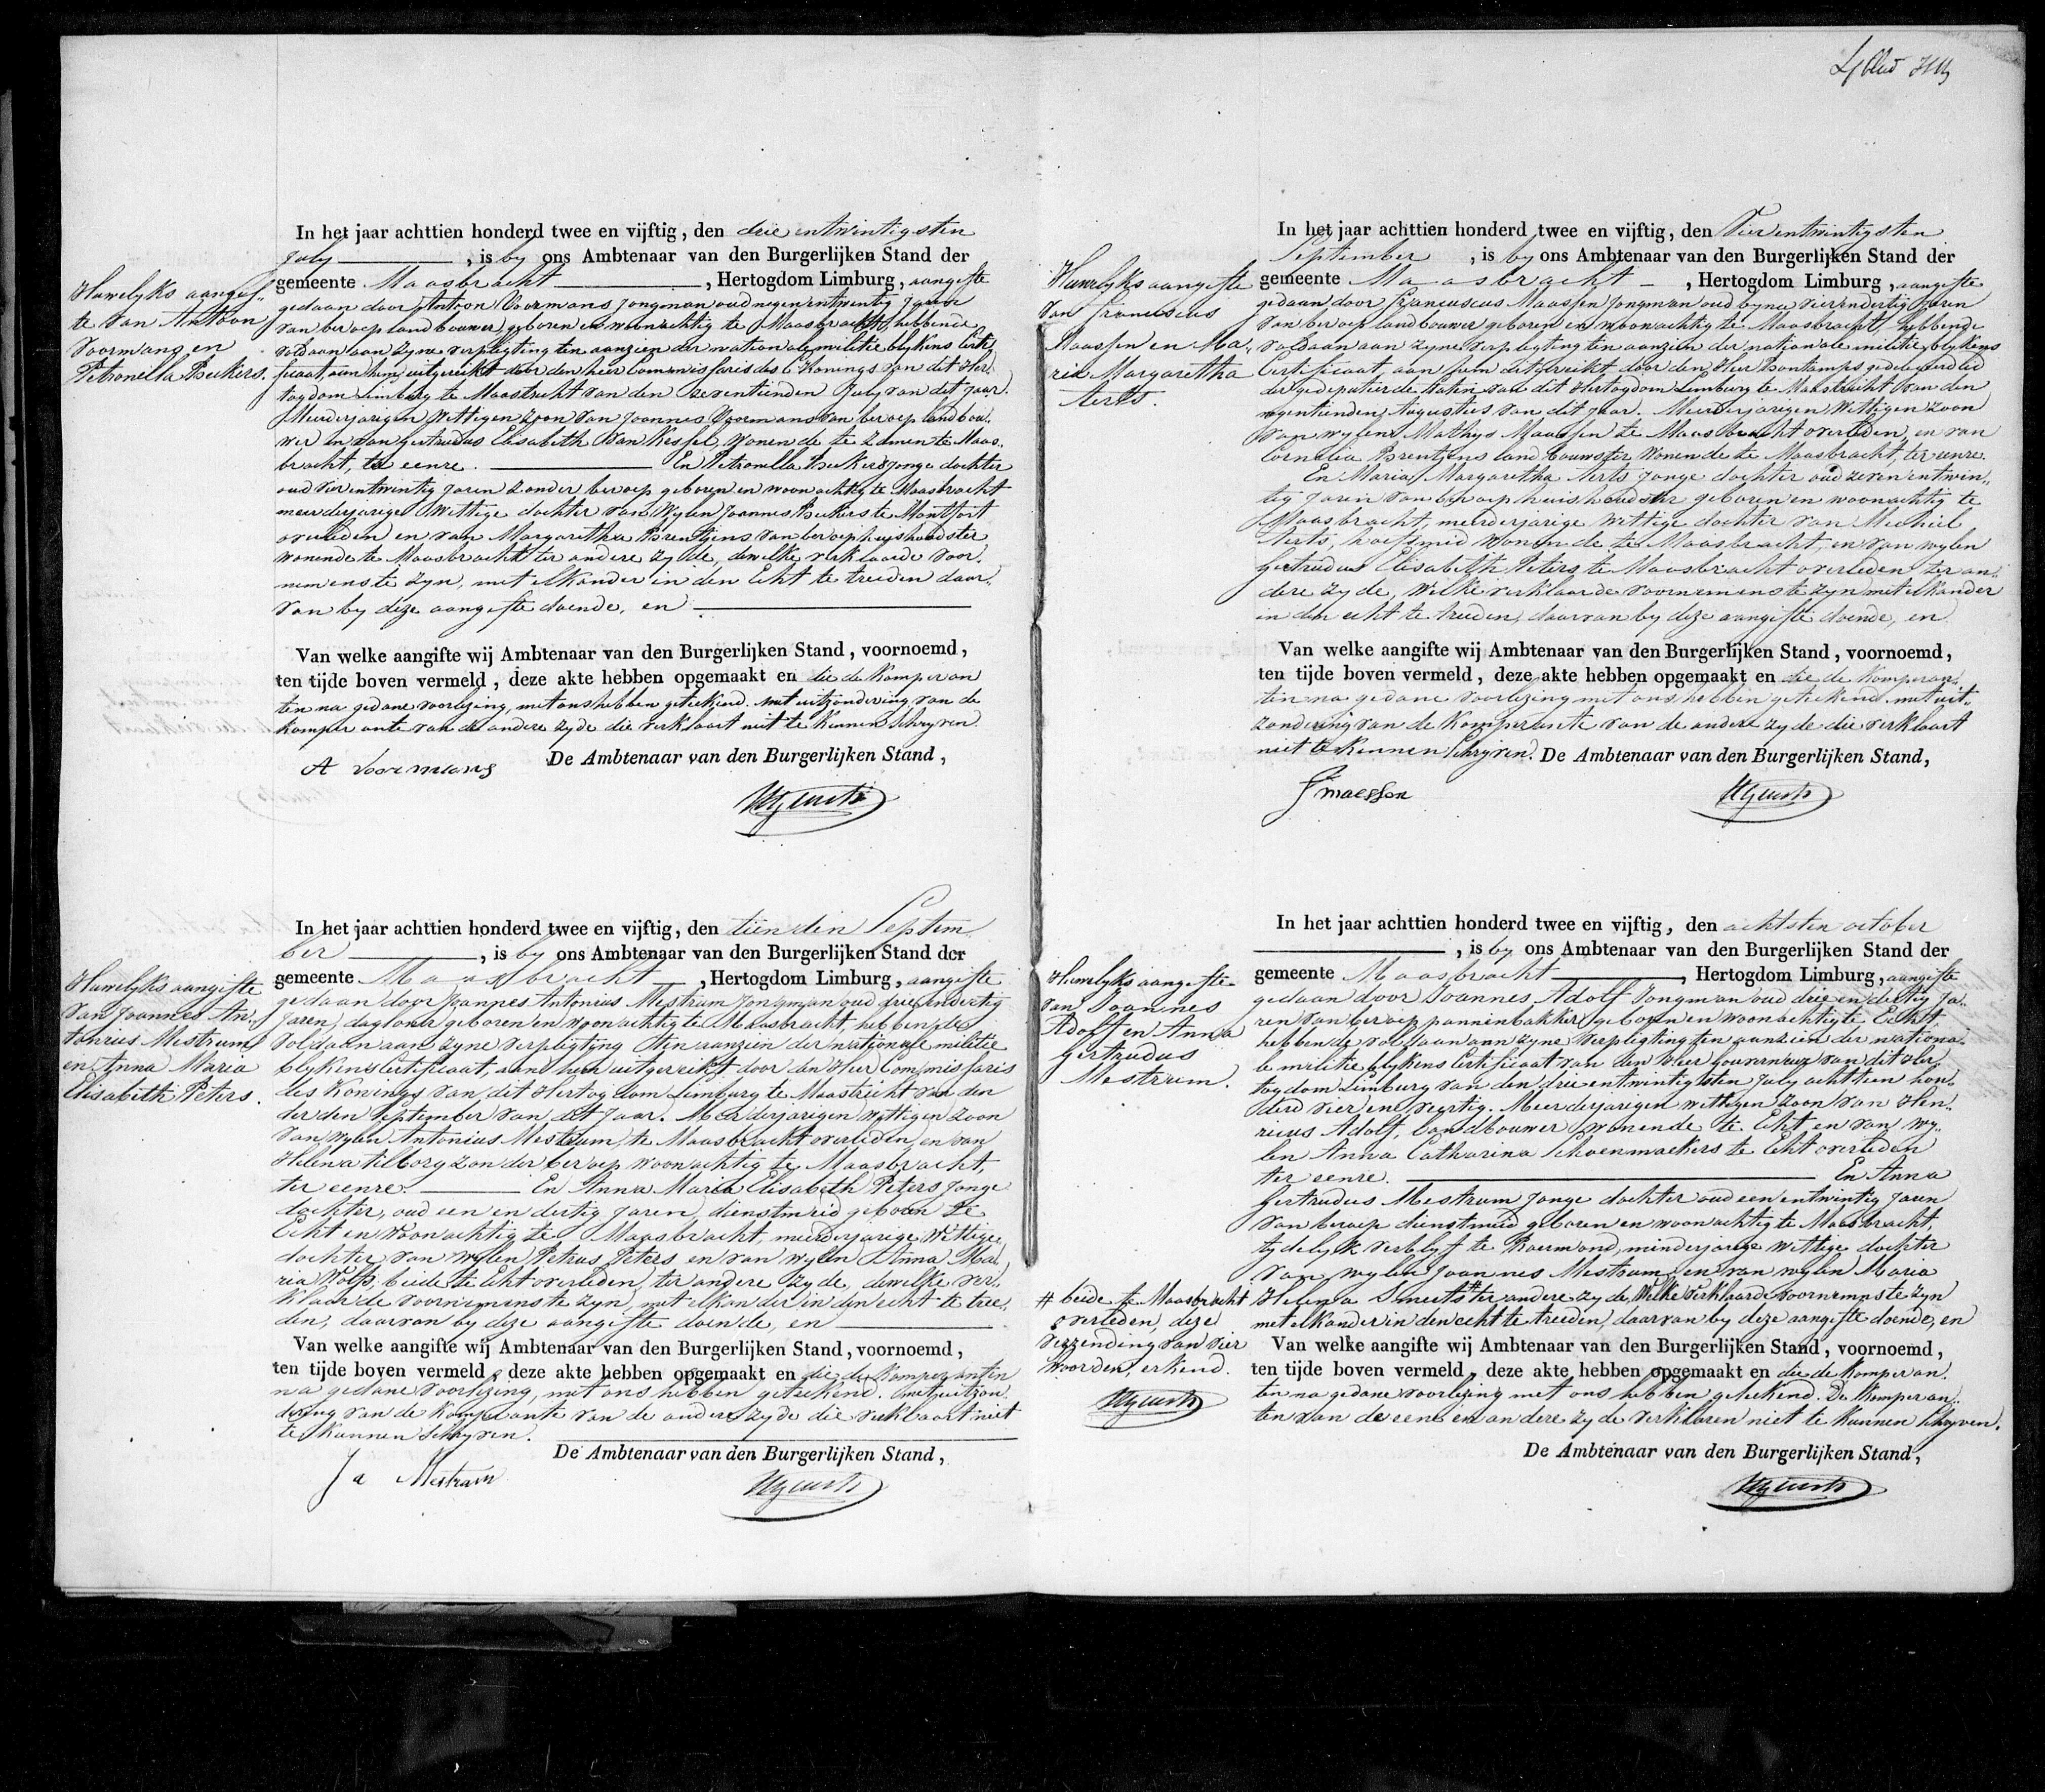 In het jaar achttien honderd twee en vijftig, den drie entwintigsten
July , is by ons Ambtenaar van den Burgerlijken Stand der
gemeente Maasbracht , Hertogdom Limburg, aangifte
Huwelyks aangif-
te van Antoon
Voormans en
Petronilla Beckers.
gedaan door Antoon Voormans jongman oud negenentwintig Jaren
van beroep landbouwer, geboren en woonachtig te Maasbracht, hebbende
voldaan aan zyne verpligting ten aanzien der nationale militie blykens Certi-
ficaat, aan hem uitgereikt door den heer Commissaris des Konings van dit Her-
togdom Limburg te Maastricht van den zeventienden July van dit jaar.
Meerderjarigen Wettigen Zoon van Joannes Voormans van beroep landbou-
wer en van Gertrudus Elisabeth Van Kessel, wonende te zamen te Maas-
bracht, te eenre. En Petronella Beckers Jonge dochter
oud vierentwintig Jaren zonder beroep geboren en woonachtig te Maasbracht
meerderjarige Wettige dochter van Wylen Joannes Beckers te Montfort
overleden en van Margaritha Brentjens van beroep huyshoudster
wonende te Maasbracht ter andere zyde, dewelke verklaarde voor-
nemens te zyn, met elkander in den Echt te treeden daar-
van by deze aangifte doende, en
Van welke aangifte wij Ambtenaar van den Burgerlijken Stand, voornoemd,
ten tijde boven vermeld, deze akte hebben opgemaakt en die de Komperan
ten na gedane voorlezing, met ons hebben geteekend. met uitzondering van de
komperante van de andere zyde die verklaart niet te kunnen Schryven.
A Voormans De Ambtenaar van den Burgerlijken Stand,
In het jaar achttien honderd twee en vijftig, den tienden Septem
ber , is by ons Ambtenaar van den Burgerlijken Stand der
gemeente Maasbracht , Hertogdom Limburg, aangifte
Huwelyks aangifte
van Joannes An-
tonius Mestrum
en Anna Maria
Elisabeth Peters.
gedaan door Joannes Antonius Mestrum Jongman oud drie en dertig
Jaren, dagloner geboren en woonachtig te Maasbracht, hebbende
voldaan aan zyne verpligting ten aanzien der nationale militie
blykens Certificaat, aan hem uitgereikt door den Heer Commissaris
des Konings van dit Hertogdom Limburg te Maastricht van den
derden September van dit Jaar. Meerderjarigen wettigen zoon
van wylen Antonius Mestrum, te Maasbracht overleden, en van
Helena Tilborg zonder beroep woonachtig te Maasbracht,
ter eenre. En Anna Maria Elisabeth Peters Jonge
dochter, oud een en dertig Jaren, dienstmeid geboren te
Echt en Woonachtig te Maasbracht, meerderjarige, Wettige
dochter van wylen Petrus Peters en van wylen Anna Ma-
ria Wolfs, beide te Echt overleden, ter andere zyde, dewelke ver-
klaarde voornemens te zyn, met elkander in den echt te tree-
den, daarvan by deze aangifte doende, en
Van welke aangifte wij Ambtenaar van den Burgerlijken Stand, voornoemd,
ten tijde boven vermeld, deze akte hebben opgemaakt en die de Komperanten
na gedane voorlezing, met ons hebben geteekend. met uitzon-
dering van de Komperante van de andere zyde die verklaart niet
te kunnen Schryven.
De Ambtenaar van den Burgerlijken Stand,
J a Mestrum
In het jaar achttien honderd twee en vijftig, den Vier entwintigsten
September , is by ons Ambtenaar van den Burgerlijken Stand der
gemeente Maasbracht , Hertogdom Limburg, aangifte
Huwelyks aangifte
van Franciscus
Maassen en Ma-
ria Margarettha
Aerts.
gedaan door Franciscus Maassen Jongman oud byna vierendertig Jaren
van beroep landbouwer geboren en woonachtig te Maasbracht, hebbende
voldaan aan zyne verpligting ten aanzien der nationale militie, blykens
Certificaat, aan hem uitgereikt door den Heer Bontamps gedelegeerd lid
der gedeputeerde Staten van dit Hertogdom Limburg te Maastricht van den
negentienden Augustus van dit jaar. Meerderjarigen Wettigen zoon
van wylen Mathys Maassen te Maasbracht overleden, en van
Cornelia Brentjens landbouwster Wonende te Maasbracht, ter eenre.
En Maria Margaretha Aerts Jonge dochter oud zeven entwin-
tig Jaren van beroep huishoudster geboren en woonachtig te
Maasbracht, meerderjarige Wettige dochter van Mechiel
Aerts, hoefsmid wonende te Maasbracht, en van wylen
Gertrudus Elisabeth Peters te Maasbracht overleden ter an-
dere zyde, Welke verklaarde voornemens te zyn met elkander
in den echt te treeden, daarvan by deze aangifte doende, en
Van welke aangifte wij Ambtenaar van den Burgerlijken Stand, voornoemd,
ten tijde boven vermeld, deze akte hebben opgemaakt en die de Komperan-
ten na gedane voorlezing met ons hebben geteekend. met uit-
zondering van de Komperante van de andere zyde die verklaart
niet te kunnen Schryven. De Ambtenaar van den Burgerlijken Stand,
F maessen
In het jaar achttien honderd twee en vijftig, den achtsten october
, is by ons Ambtenaar van den Burgerlijken Stand der
gemeente Maasbracht , Hertogdom Limburg, aangifte
Huwelyks aangifte
van Joannes
Adolf en Anna
Gertrudus
Mestrum.
gedaan door Joannes Adolf Jongman oud drie en dertig Ja-
ren van beroep pannenbakker, geboren en woonachtig te Echt,
hebbende voldaan aan zyne verpligting ten aanzien der nationa-
le militie blykens Certificaat van den Heer Gouverneur van dit Her-
togdom Limburg van den drie entwintigsten July achttien hon-
derd vier en veertig. Meerderjarigen wettigen zoon van Hen-
ricus Adolf, Landbouwer wonende te Echt en van wy-
len Anna Catharina Schoenmaekers te Echt overleden
ter eenre. En Anna
Gertrudus Mestrum Jonge dochter oud een entwintig Jaren
van beroep dienstmeid geboren en woonachtig te Maasbracht,
tydelyk verblyf te Roermond, minderjarige wettige dochter
van wylen Joannes Mestrum, en van wylen Maria
Helena Smeets # ter andere zyde, Welke verklaarde voornemens te zyn
met elkander in den echt te treeden, daarvan by deze aangifte doende, en
# beide te Maasbracht
overleden, deze
verzending van vier
Woorden, erkend.
Van welke aangifte wij Ambtenaar van den Burgerlijken Stand, voornoemd,
ten tijde boven vermeld, deze akte hebben opgemaakt en die de Komperan-
ten na gedane voorlezing met ons hebben geteekend. De Komperan-
ten van de eene en andere zyde verklaren niet te kunnen Schryven.
De Ambtenaar van den Burgerlijken Stand,